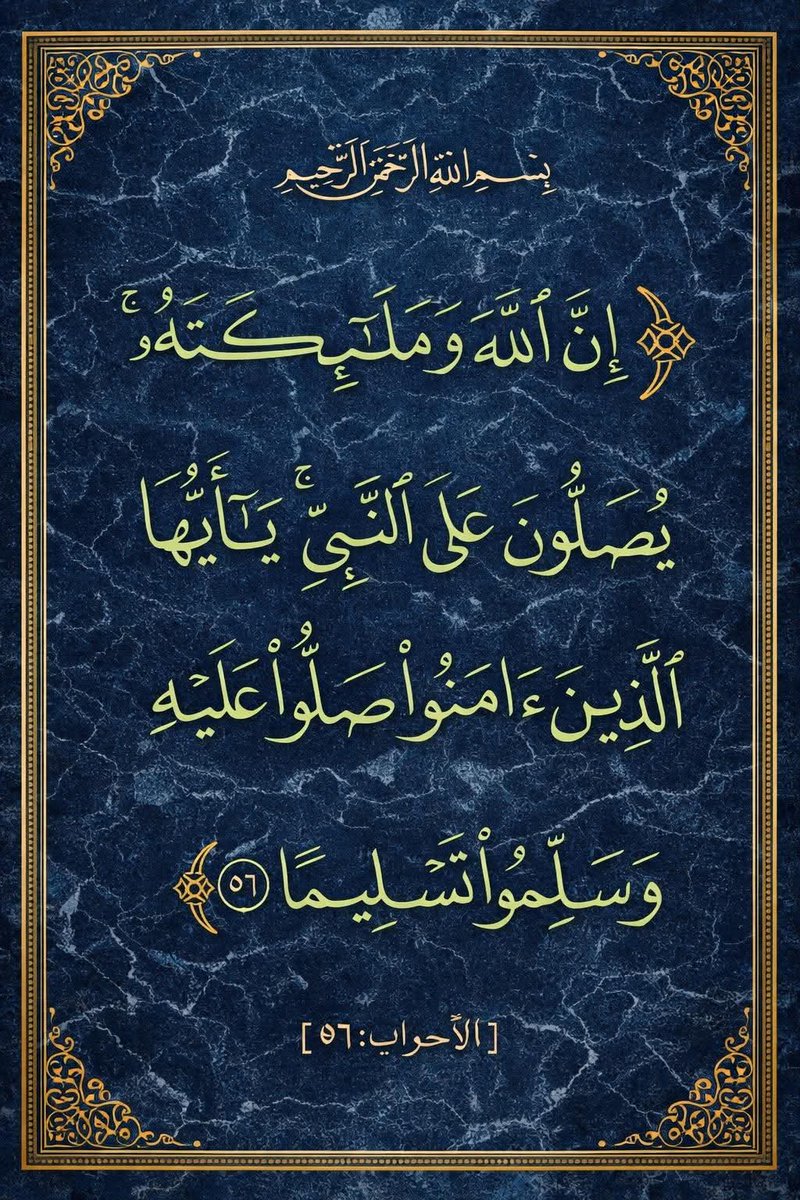 بِسْمِ اللهِ الرَّحْمَٰنِ الرَّحِيمِ
﴿ إِنَّ ٱللَّهَ وَمَلَـٰٓئِكَتَهُۥ ۚ
يُصَلُّونَ عَلَى ٱلنَّبِىِّ ۚ يَـٰٓأَيُّهَا
ٱلَّذِينَ ءَامَنُوا۟ صَلُّوا۟ عَلَيْهِ
وَسَلِّمُوا۟ تَسْلِيمًا ٥٦ ﴾
[ الأحواب: ٥٦ ]